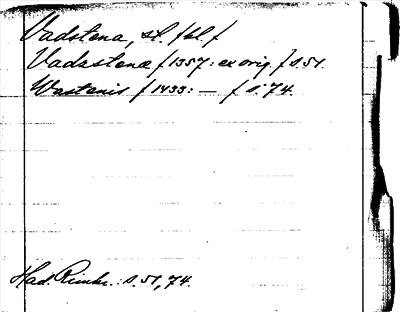 Vadstena, st. f bl f
Vadzstenæ f 1357: ex orig. f s. 51.
Wastenis f 1433: — f s. 74.
Had. Rimkr.: s. 51, 74.